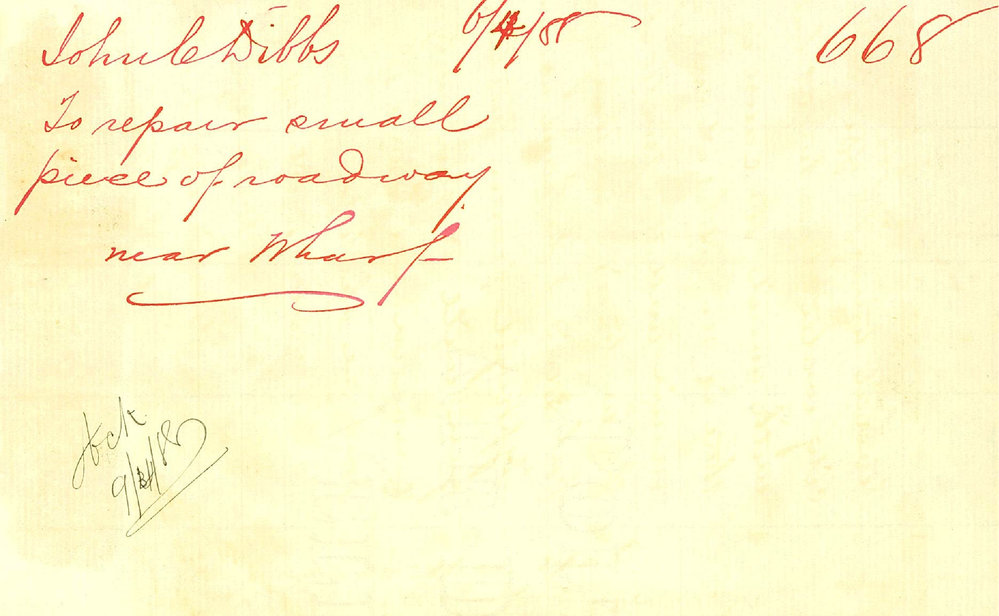 John C Dibbs 6/4/88 668
To repair small
piece of roadway
near Wharf
Ack
9/4/88